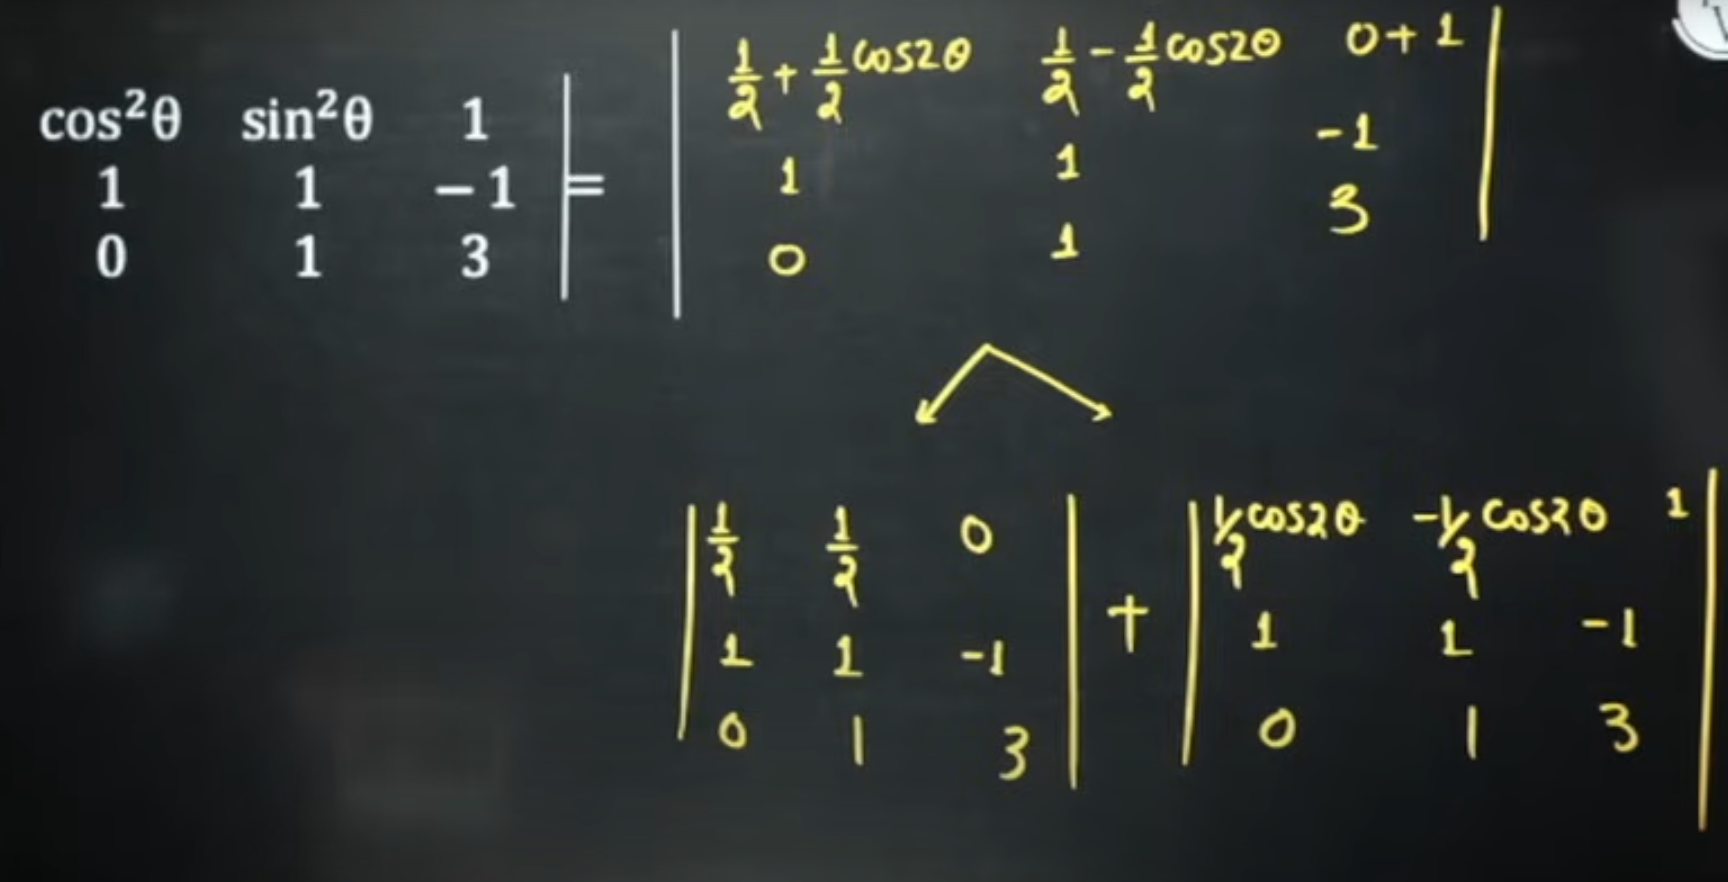 cos²θ sin²θ 1
1 1 −1
0 1 3
=
1/2 + 1/2 cos2θ 1/2 - 1/2 cos2θ 0+1
1 1 -1
0 1 3
1/2 1/2 0
1 1 -1
0 1 3
+
1/2 cos2θ -1/2 cos2θ 1
1 1 -1
0 1 3